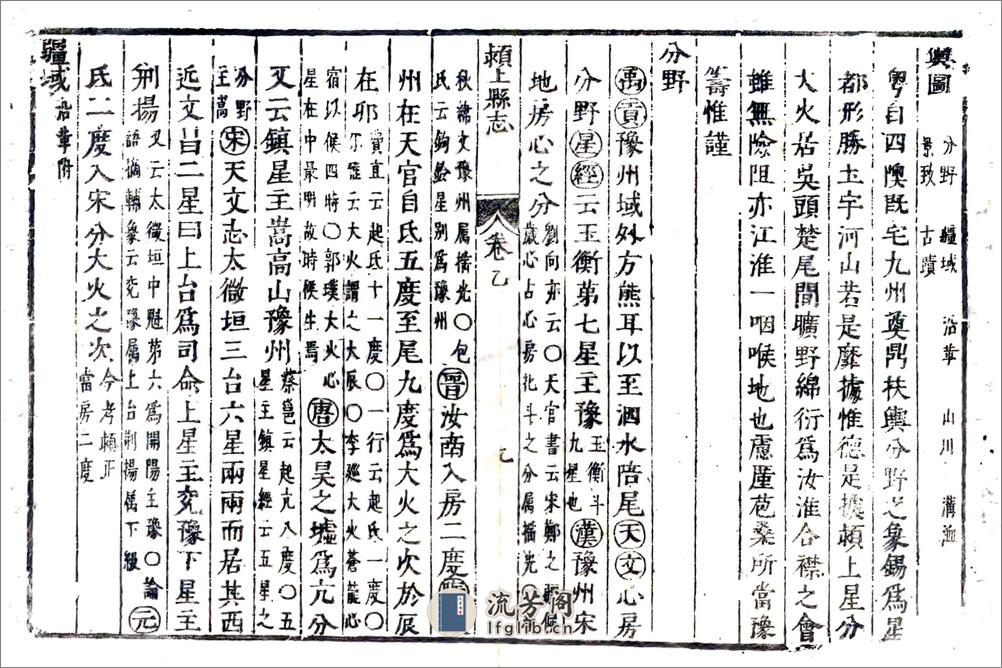 輿圖 分野 疆域 沿革 山川 溝洫
景致 古蹟
粵自四隩旣宅九州奠鼎扶輿分野之象錫爲星
都形勝土宇河山若是靡據惟德是據頴上星分
大火居吳頭楚尾間曠野綿衍爲汝淮合襟之會
雖無險阻亦江淮一咽喉地也慮廑苞桑所當豫
籌惟謹
分野
禹貢豫州域外方熊耳以至泗水陪尾天文心房
分野星經云玉衡第七星主豫玉衡斗九星也漢豫州宋
地房心之分劉向亦云〇天官書云宋鄭之疆候歲心占心房北斗之分屬
頴上縣志 卷乙 九
秋緯文豫州屬 〇包氏云鉤鈐星別爲豫州晉汝南入房二度
州在天官自氐五度至尾九度爲大火之次於辰
在卯費直云起氐十一度〇一行云起氐一度〇爾雅云大火謂之大辰〇李廵大火蒼龍心
宿以候四時〇郭璞大火心星在中最明故時候主焉唐太昊之墟爲亢分
又云鎭星主嵩高山豫州蔡邕云起亢八度〇五星主鎭星經云五星之
分野主高宋天文志太微垣三台六星兩兩而居其西
近文昌二星曰上台爲司命上星主兗豫下星主
荆揚又云太微垣中魁第六爲開陽主豫〇論語摘輔象云兗豫屬上台荆揚屬下級元
氐二度入宋分大火之次今考頴正當房二度
疆域沿革附
流芳阁
lfglib.cn